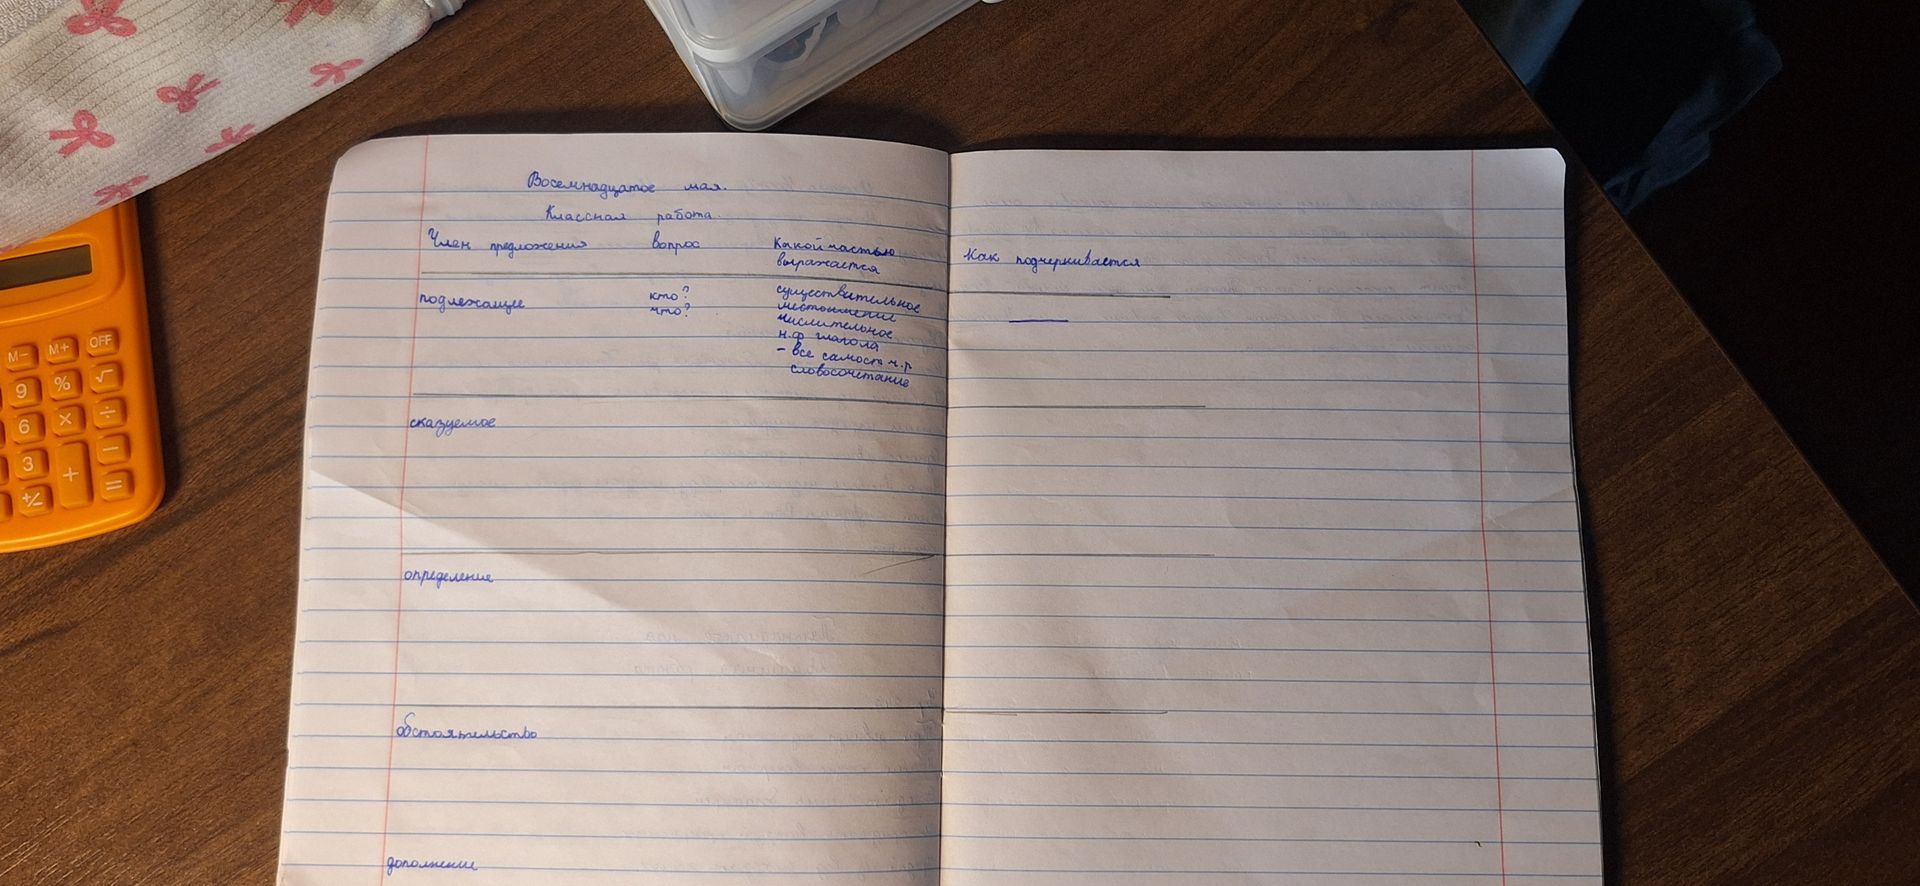 Восемнадцатое мая.
Классная работа.
Член предложения вопрос Какой частью выражается Как подчеркивается
подлежащее кто? что? существительное
местоимение
числительное
н.ф глагола
- все самост ч.р
словосочетание
сказуемое
определение
обстоятельство
дополнение
M- M+ OFF
9 % √
6 × ÷
3 + −
+/- =